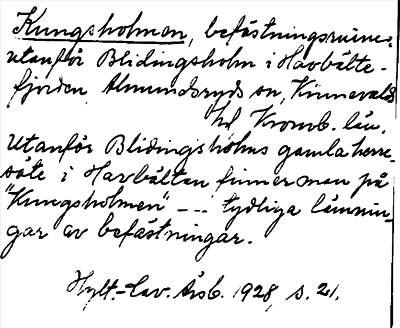 Kungsholmen, befästningsruiner
utanför Blidingsholm i Havbälte-
fjorden, Almundsryds sn, Kinnevalds
hd Kronb. län.
Utanför Blidingsholms gamla herre-
säte i Havbälten finner man på
"Kungsholmen" --- tydliga lämnin-
gar av befästningar.
Hylt.-Cav. Årsb. 1928, s. 21.